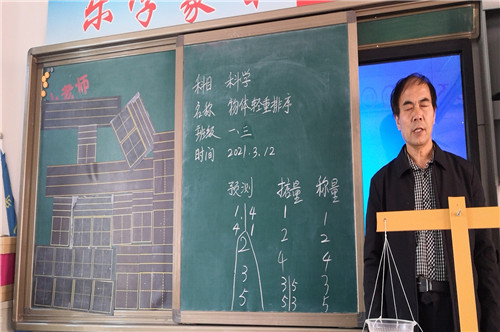 乐学
小老师
科目 科学
名称 物体轻重排序
班级 一.三
时间 2021.3.12
预测 掂量 称量
1 4 1 1
4 1 2 2
2 4 4
3 3 5 3
5 5 3 5